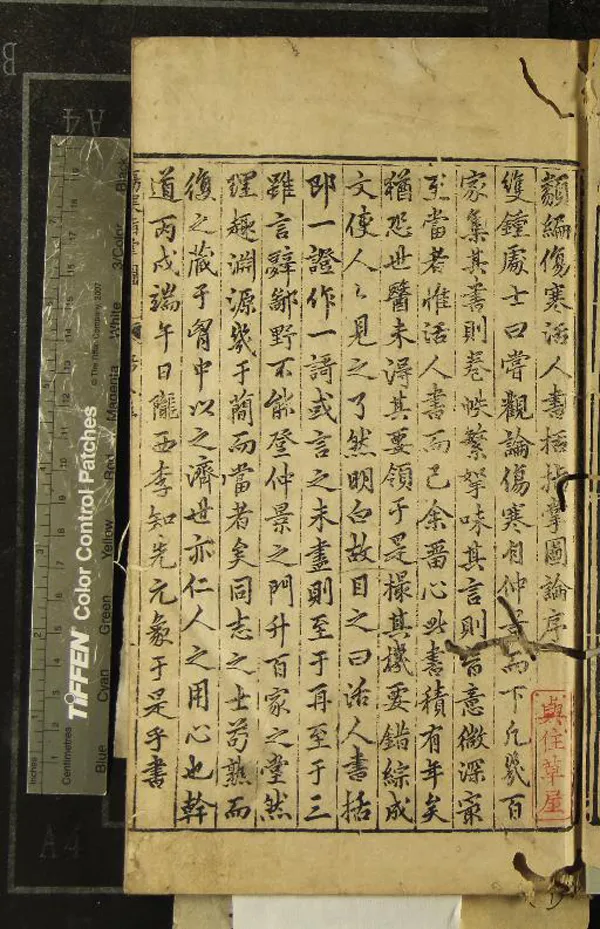 類編傷寒活人書括指掌圖論序
雙鍾處士曰嘗觀論傷寒自仲景而下凡幾百
家集其書則卷帙繁拏味其言則旨意微深最
至當者惟活人書而已余畱心此書積有年矣
猶恐世醫未淂其要領于是撮其機要錯綜成
文使人々見之了然明白故目之曰活人書括
即一證作一謌或言之未盡則至于再至于三
雖言辭鄙野不能登仲景之門升百家之堂然
理趣淵源幾于簡而當者矣同志之士苟熟而
復之藏于胷中以之濟世亦仁人之用心也幹
道丙戍端午日隴西李知先元象于是乎書
與住草屋
TIFFEN Color Control Patches
© The Tiffen Company, 2007
Inches
Centimetres
Blue
Cyan
Green
Yellow
Red
Magenta
White
3/Color
Black
A4
A4
B